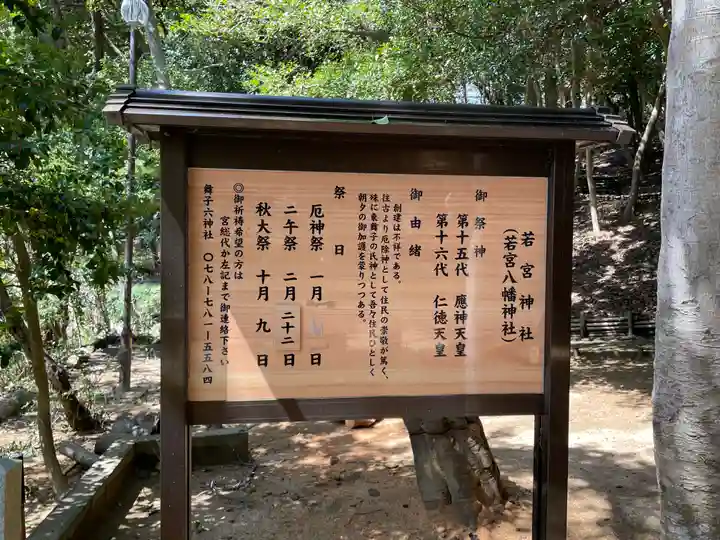 若宮神社
(若宮八幡神社)
御祭神
第十五代 應神天皇
第十六代 仁徳天皇
御由緒
創建は不祥である。
往古より厄除神として住民の崇敬が篤く、
殊に東舞子の氏神として吾々住民ひとしく
朝夕の御加護を蒙りつつある。
祭日
厄神祭 一月 日
二午祭 二月二十二日
秋大祭 十月九日
◎御祈祷希望の方は
宮総代か左記まで御連絡下さい
舞子六神社 〇七八ー七八一ー五五八四